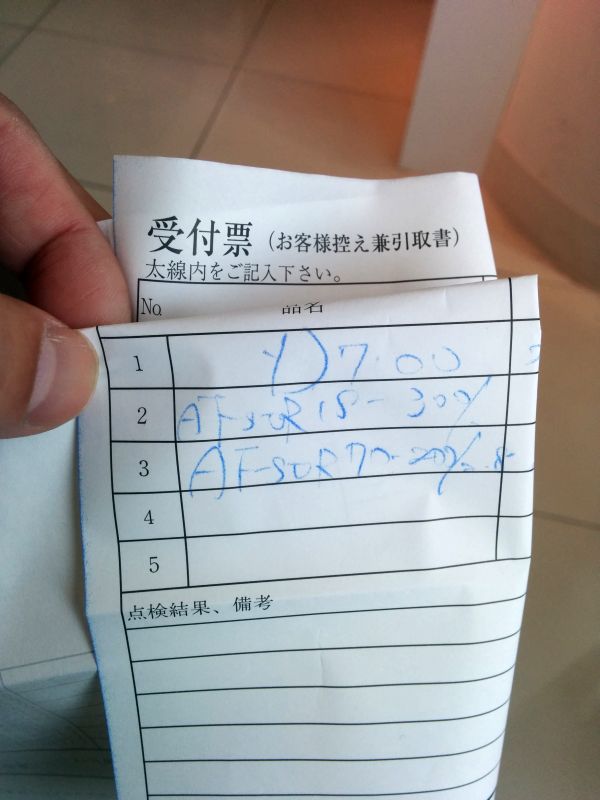 受付票（お客様控え兼引取書）
太線内をご記入下さい。
No. 品名
1 D700
2 AF-SVR18-300/
3 AF-SVR70-200/2.8
4
5
点検結果、備考